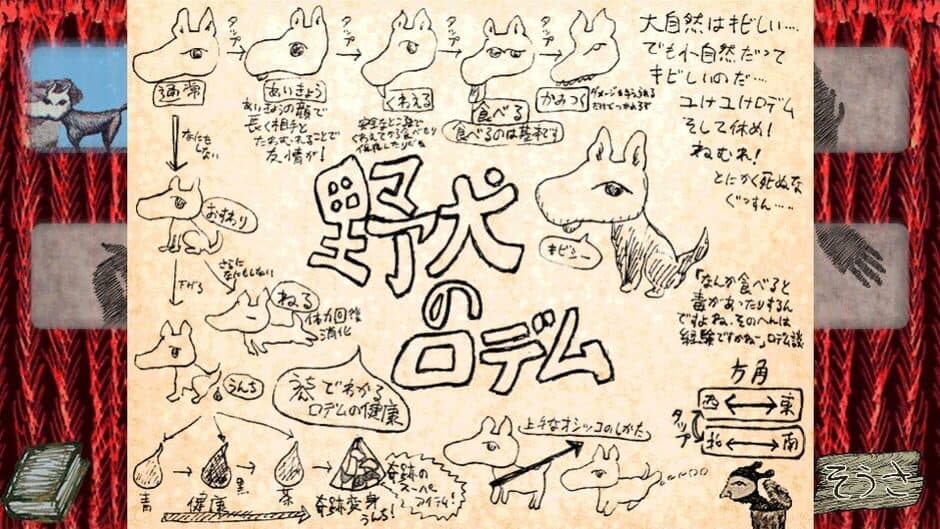 タップ
タップ
タップ
タップ
通常
あいきょう
くわえる
食べる
かみつく
あいきょうの顔で
長く相手と
たわむれることで
友情が!
食べるのは基本です
大自然はキビしい…
でも小自然だって
キビしいのだ…
ユけユけロデム
そして休め!
ねむれ!
とにかく死ぬな
ぐっすん……
なにも
しない
おすわり
さらに
なにもしない
ねる
体力回復
消化
うんち
野犬
の
ロデム
キビシー
「なんか食べると
毒があったりするん
ですよね、そのへんは
経験ですかね」ロデム談
方角
西
東
タップ
北
南
でわかる
ロデムの健康
上手なオシッコのしかた
青
健康
黒
茶
奇跡変身
うんち!
奇跡の
スーパー
アイテム!
そうさ